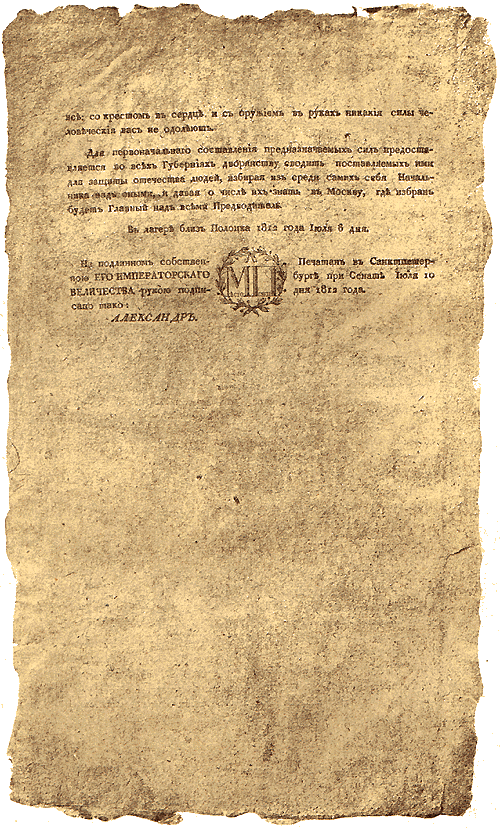 всѣ: со крестомъ въ сердцѣ и съ оружіемъ въ рукахъ никакія силы че-
ловѣческія васъ не одолѣютъ.
Для первоначальнаго составленія предназначаемыхъ силъ предоста-
вляется во всѣхъ Губерніяхъ дворянству сводить поставляемыхъ ими
для защиты отечества людей, избирая изъ среды самихъ себя Началь-
ника надъ оными, и давая о числѣ ихъ знать въ Москву, гдѣ избранъ
будетъ Главный надъ всѣми Предводитель.
Въ лагерѣ близь Полоцка 1812 года Іюля 6 дня.
На подлинномъ собствен-
ною ЕГО ИМПЕРАТОРСКАГО
ВЕЛИЧЕСТВА рукою подпи-
сано тако:
АЛЕКСАНДРЪ.
МП
Печатанъ въ Санктпетер-
бургѣ при Сенатѣ Іюля 10
дня 1812 года.